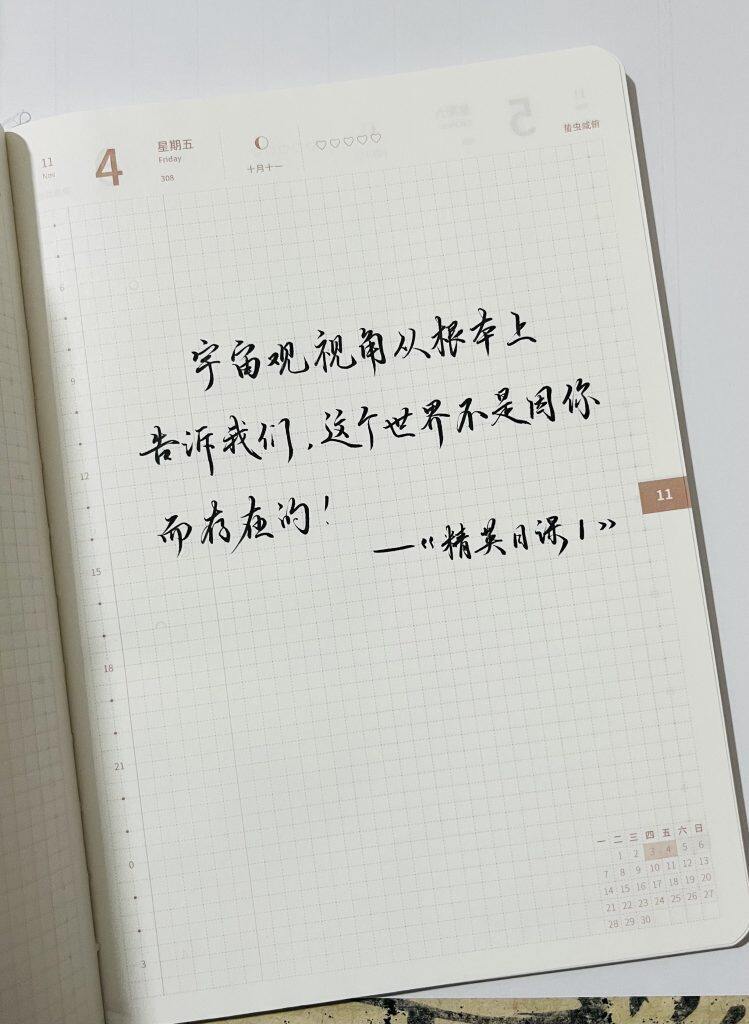 11
Nov
4
星期五
Friday
308
十月十一
蛰虫咸俯
6
9
12
15
18
21
0
3
宇宙观视角从根本上
告诉我们,这个世界不是因你
而存在的!
—《精英日课1》
11
一 二 三 四 五 六 日
1 2 3 4 5 6
7 8 9 10 11 12 13
14 15 16 17 18 19 20
21 22 23 24 25 26 27
28 29 30